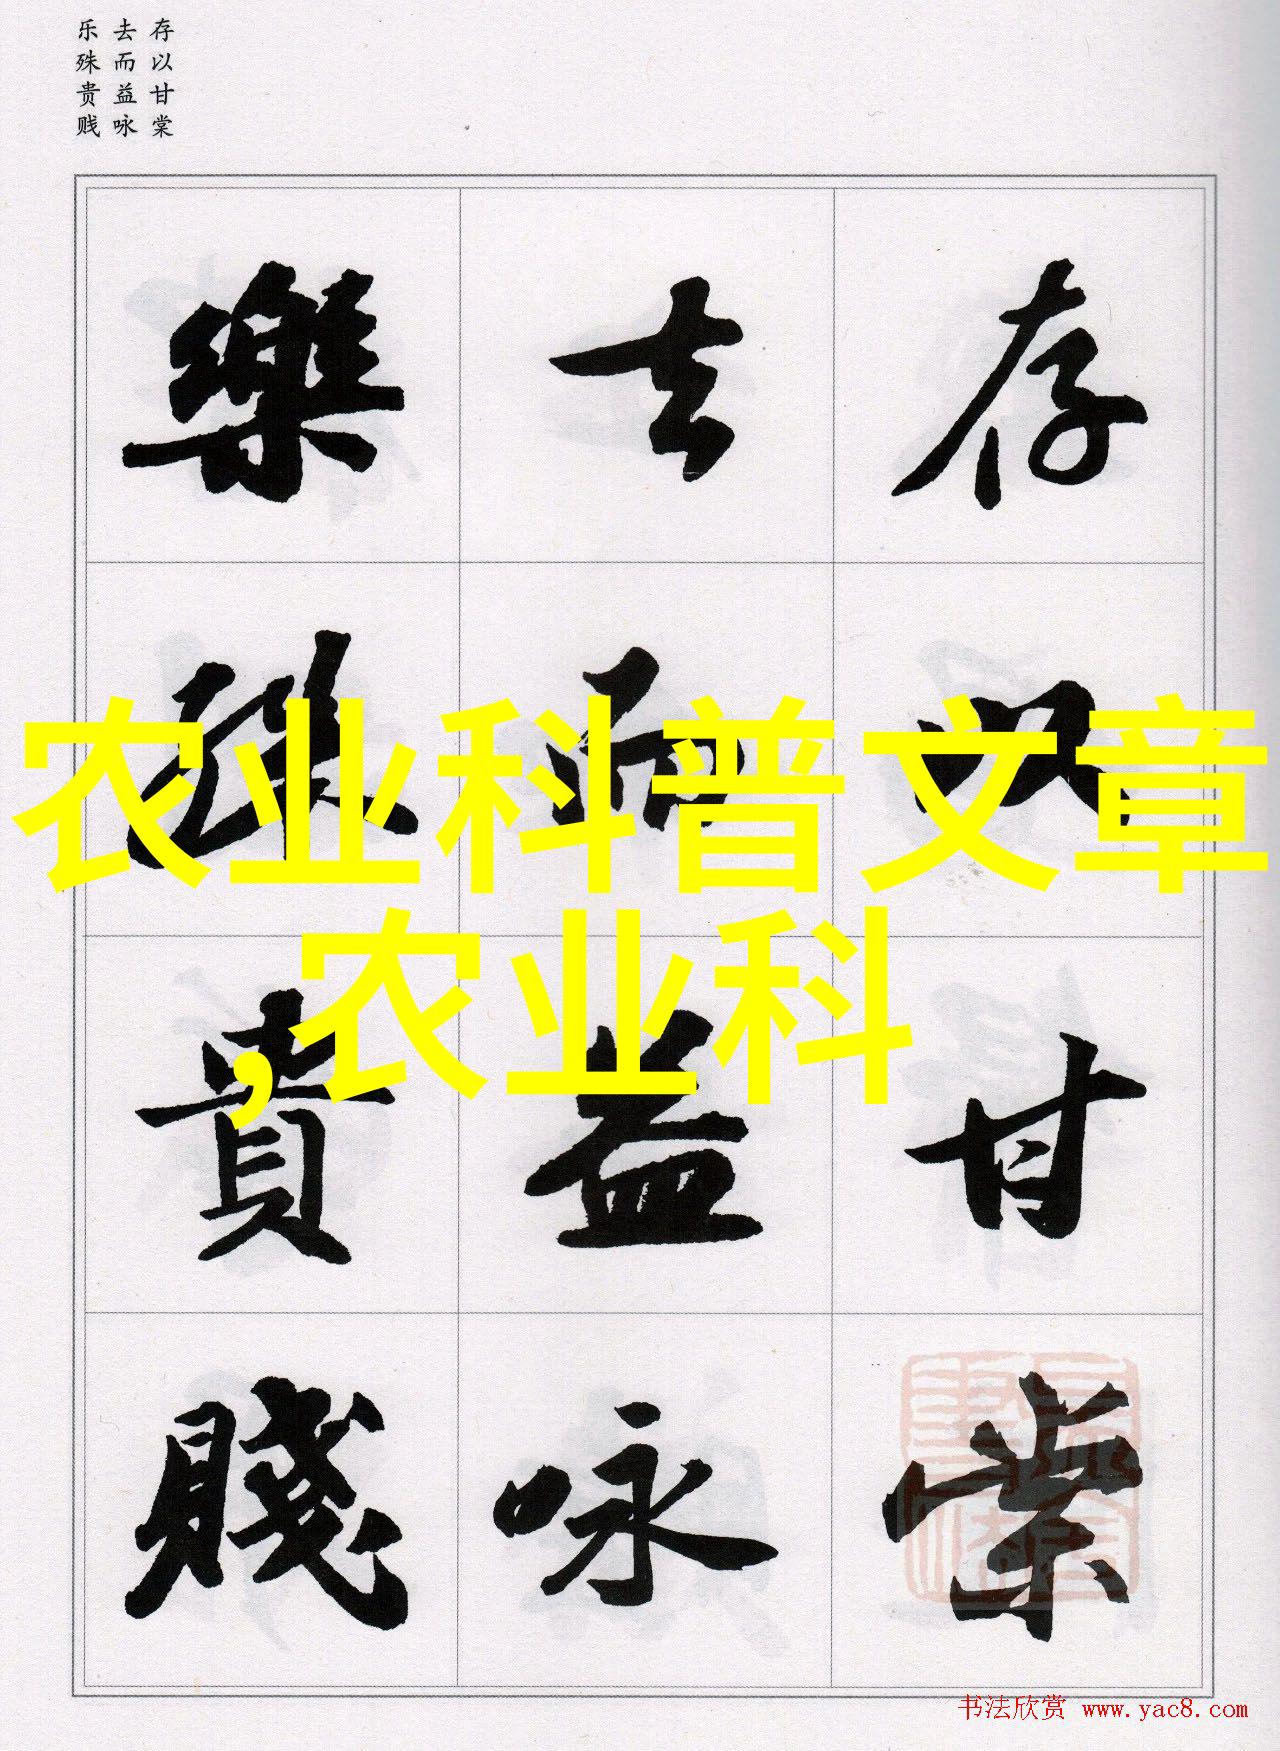 存以甘棠
去而益咏
乐殊贵贱
存以甘棠
去而益咏
樂殊貴賤
农业科普文章
,农业科
书法欣赏 www.yac8.com